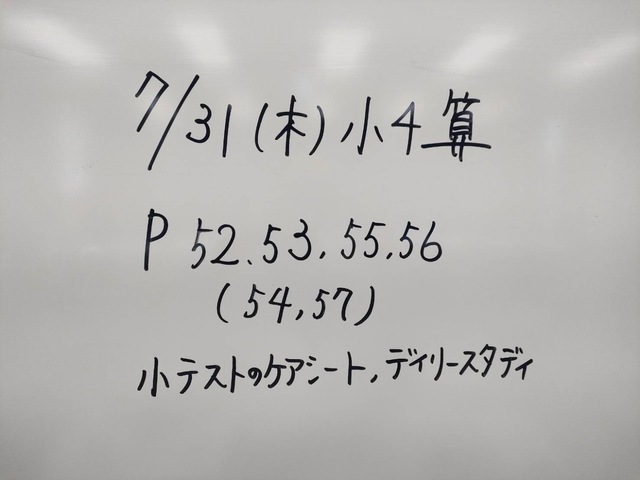 7/31(木)小4算
P 52.53.55.56
(54,57)
小テストのケアシート,ディリースタディ